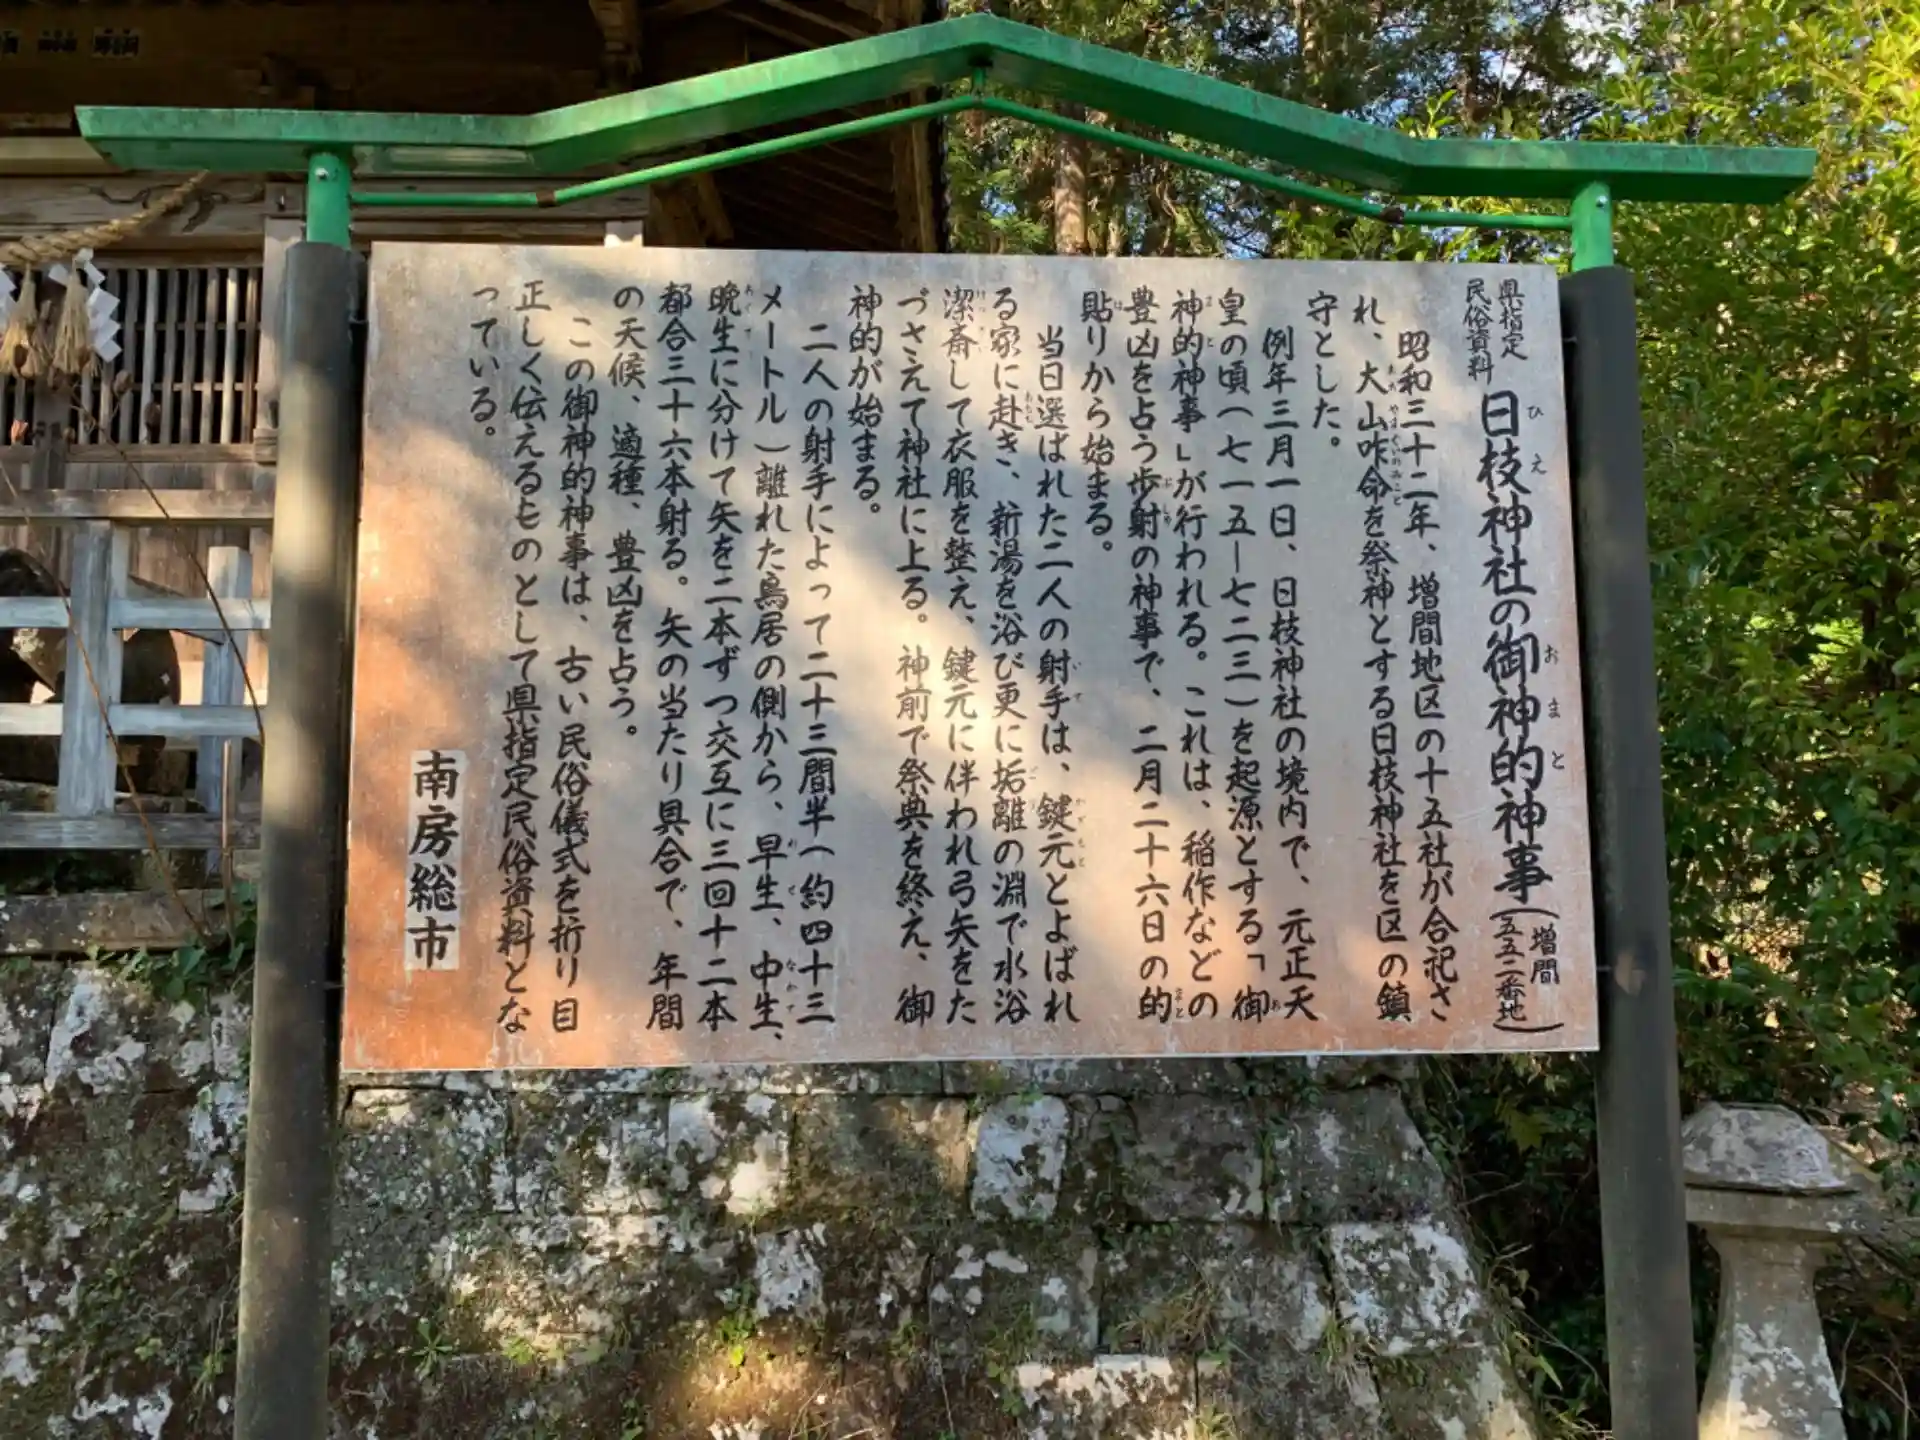 県指定
民俗資料
日枝神社の御神的神事(増間
五五二番地)
昭和三十二年、増間地区の十五社が合祀さ
れ、大山咋命を祭神とする日枝神社を区の鎮
守とした。
例年三月一日、日枝神社の境内で、元正天
皇の頃(七一五—七二三)を起源とする「御
神的神事」が行われる。これは、稲作などの
豊凶を占う歩射の神事で、二月二十六日の的
貼りから始まる。
当日選ばれた二人の射手は、鍵元とよばれ
る家に赴き、新湯を浴び更に垢離の淵で水浴
潔斎して衣服を整え、鍵元に伴われ弓矢をた
づさえて神社に上る。神前で祭典を終え、御
神的が始まる。
二人の射手によって二十三間半(約四十三
メートル)離れた鳥居の側から、早生、中生、
晩生に分けて矢を二本ずつ交互に三回十二本
都合三十六本射る。矢の当たり具合で、年間
の天候、適種、豊凶を占う。
この御神的神事は、古い民俗儀式を折り目
正しく伝えるものとして県指定民俗資料とな
っている。
南房総市